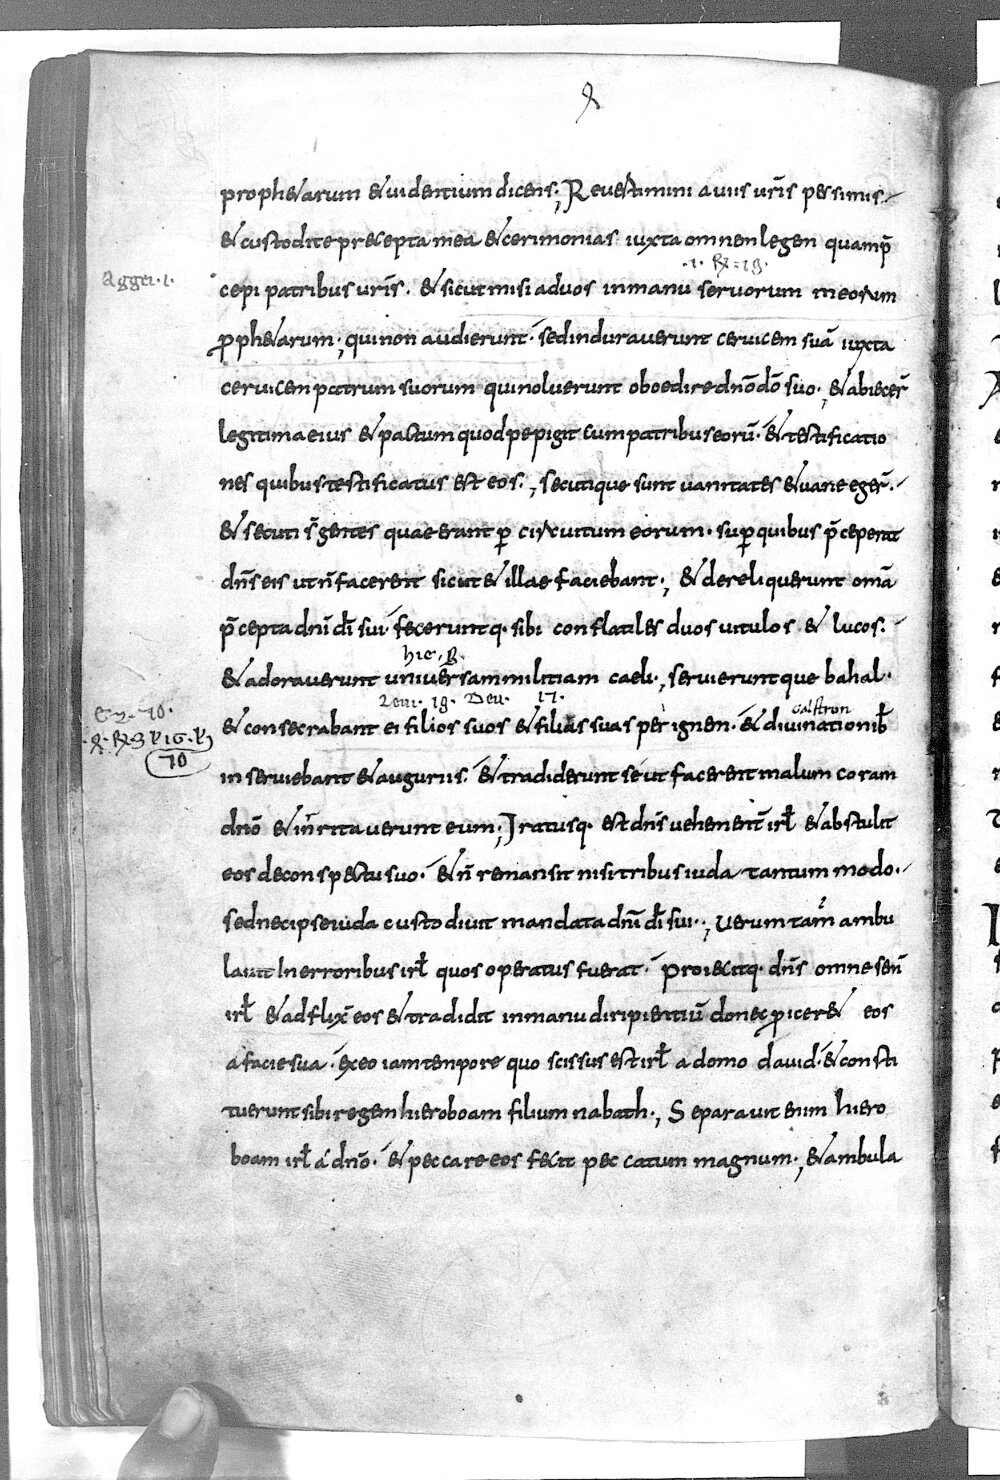 prophetarum & uidentium dicens; Reuertimini a uiis uris̄ pessimis
& custodite precepta mea & cerimonias iuxta omnem legem quam p̄
·1· ·19·
Aggei · 1 ·
cepi patribus uris̄. & sicut misi ad uos in manu seruorum meorum
ꝓphetarum; qui non audierunt. sed indurauerunt ceruicem suā iuxta
ceruicem patrum suorum qui noluerunt oboedire dn̄o dō suo; & abiecer̄
legitima eius & pactum quod pepigit cum patribus eorū. & testificatio
nes quibus testificatus est eos; secutique sunt uanitates & uane eger̄.
& secuti s̄ gentes quae erant ꝑ circuitum eorum. suꝑ quibus p̄ceperat
dn̄s eis ut n̄ facerent sicut & illae faciebant; & dereliquerunt omā
p̄cepta dn̄i dī sui. fecerunt q· sibi conflatiles duos uitulos & lucos.
hie · 8
& adorauerunt uniuersam militiam caeli; seruieruntque bahal.
Leui · 19 · Deu · 17 ·
& consecrabant ei filios suos & filias suas per ignem. & diuinationib̄
inseruiebant & auguriis. & tradiderunt se ut facerent malum coram
70
dn̄o & inrita uerunt eum; Iratusq· est dn̄s uehement̄ irl̄ & abstulit
eos de conspectu suo. & n̄ remansit nisi tribus iuda tantum modo.
sed nec ipse iuda custodiuit mandata dn̄i dī sui; uerum tam̄ ambu
lauit In erroribus irl̄ quos operatus fuerat. proiecitq· dn̄s omne sem̄
irl̄ & adflix̄ eos & tradidit in manu diripientiū donec ꝓicer& eos
a facie sua. ex eo iam tempore quo scissus est irl̄ a domo dauid. & consti
tuerunt sibi regem hieroboam filium nabath; Separauit enim hiero
boam irl̄ a dn̄o. & peccare eos fecit peccatum magnum; & ambula